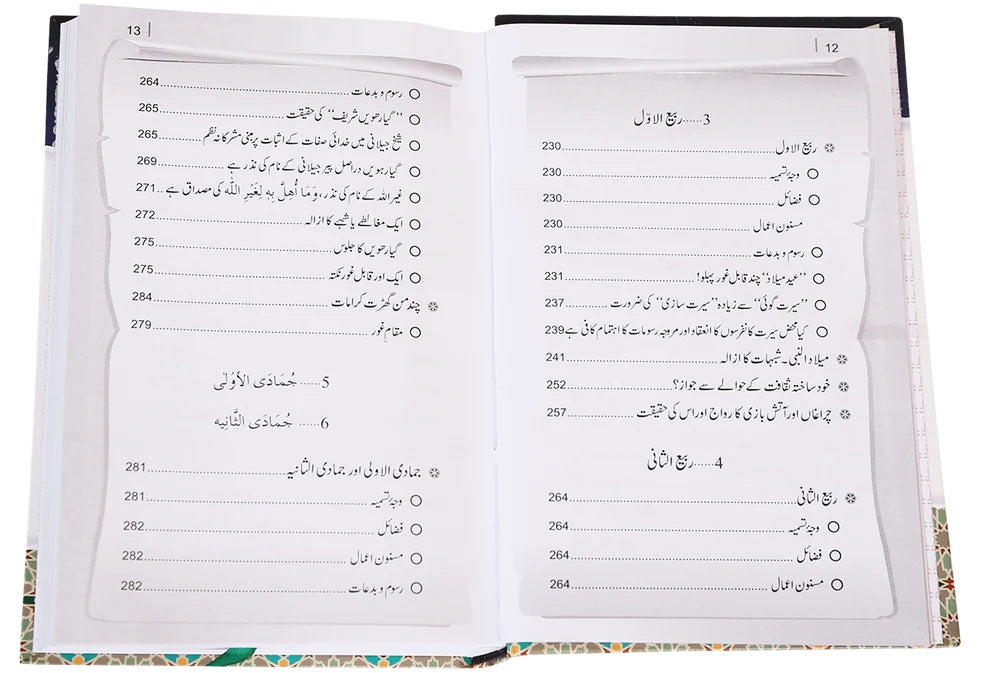 12
3......ربیع الاوّل
ربیع الاول ...... 230
وجۂ تسمیہ ...... 230
فضائل ...... 230
مسنون اعمال ...... 230
رسوم و بدعات ...... 231
”عید میلاد“ چند قابل غور پہلو! ...... 231
”سیرت گوئی“ سے زیادہ ”سیرت سازی“ کی ضرورت ...... 237
کیا محض سیرت کانفرسوں کا انعقاد اور مروجہ رسومات کا اہتمام کافی ہے 239
میلاد النبی۔ شبہات کا ازالہ ...... 241
خود ساختہ ثقافت کے حوالے سے جواز؟ ...... 252
چراغاں اور آتش بازی کا رواج اور اس کی حقیقت ...... 257
4......ربیع الثانی
ربیع الثانی ...... 264
وجۂ تسمیہ ...... 264
فضائل ...... 264
مسنون اعمال ...... 264
13
رسوم و بدعات ...... 264
”گیارھویں شریف“ کی حقیقت ...... 265
شیخ جیلانی میں خدائی صفات کے اثبات پر مبنی مشرکانہ نظم ...... 265
گیارہویں دراصل پیر جیلانی کے نام کی نذر ہے ...... 269
غیر اللہ کے نام کی نذر، وَمَا أُهِلَّ بِهٖ لِغَيْرِ اللّٰه کی مصداق ہے .. 271
ایک مغالطے یا شبہے کا ازالہ ...... 272
گیارھویں کا جلوس ...... 275
ایک اور قابل غور نکتہ ...... 275
چند من گھڑت کرامات ...... 284
مقام غور ...... 279
5...... جُمَادَی الأوُلٰی
6...... جُمَادَی الثَّانِیه
جمادی الاولی اور جمادی الثانیہ ...... 281
وجۂ تسمیہ ...... 281
فضائل ...... 282
مسنون اعمال ...... 282
رسوم و بدعات ...... 282